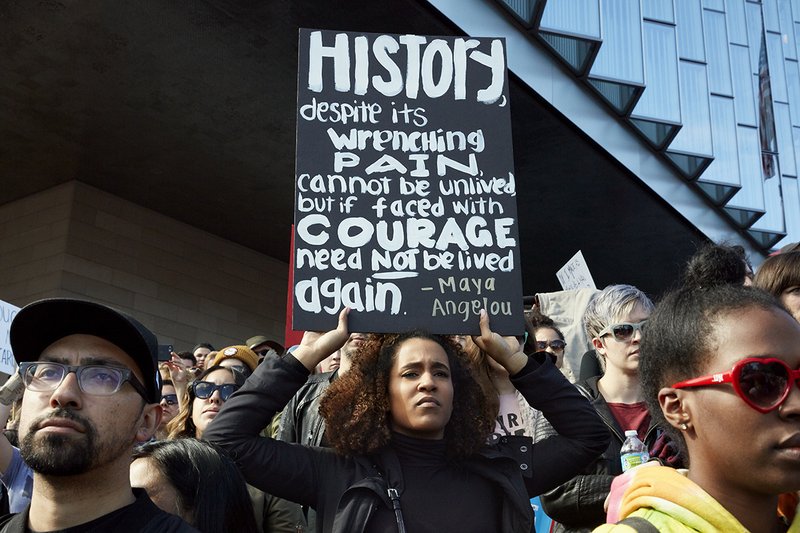 HISTORY,
despite its
wrenching
PAIN,
cannot be unlived,
but if faced with
COURAGE
need NOT be lived
again. - Maya
Angelou